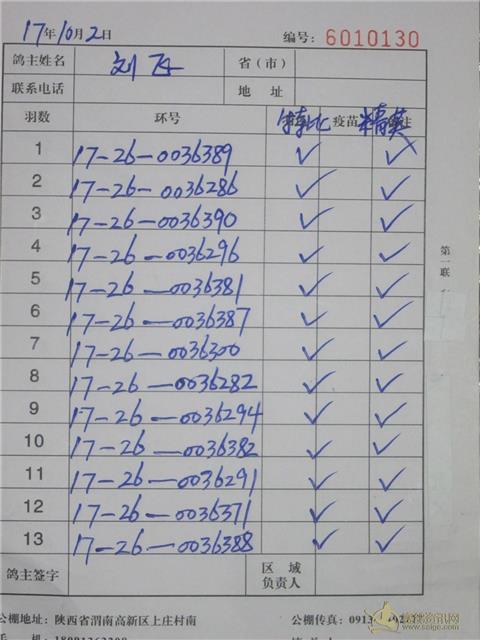 17年10月2日 编号: 6010130
鸽主姓名 刘飞 省(市)
联系电话 地 址
羽数 环号 特比 疫苗 精英
1 17-26-0036389 ✓ ✓
2 17-26-0036286 ✓ ✓
3 17-26-0036390 ✓ ✓
4 17-26-0036296 ✓ ✓
5 17-26-0036381 ✓ ✓
6 17-26-0036387 ✓ ✓
7 17-26-0036300 ✓ ✓
8 17-26-0036282 ✓ ✓
9 17-26-0036294 ✓ ✓
10 17-26-0036382 ✓ ✓
11 17-26-0036291 ✓ ✓
12 17-26-0036371 ✓ ✓
13 17-26-0036388 ✓ ✓
第一联
鸽主签字 区域负责人
公棚地址: 陕西省渭南高新区上庄村南 公棚传真: